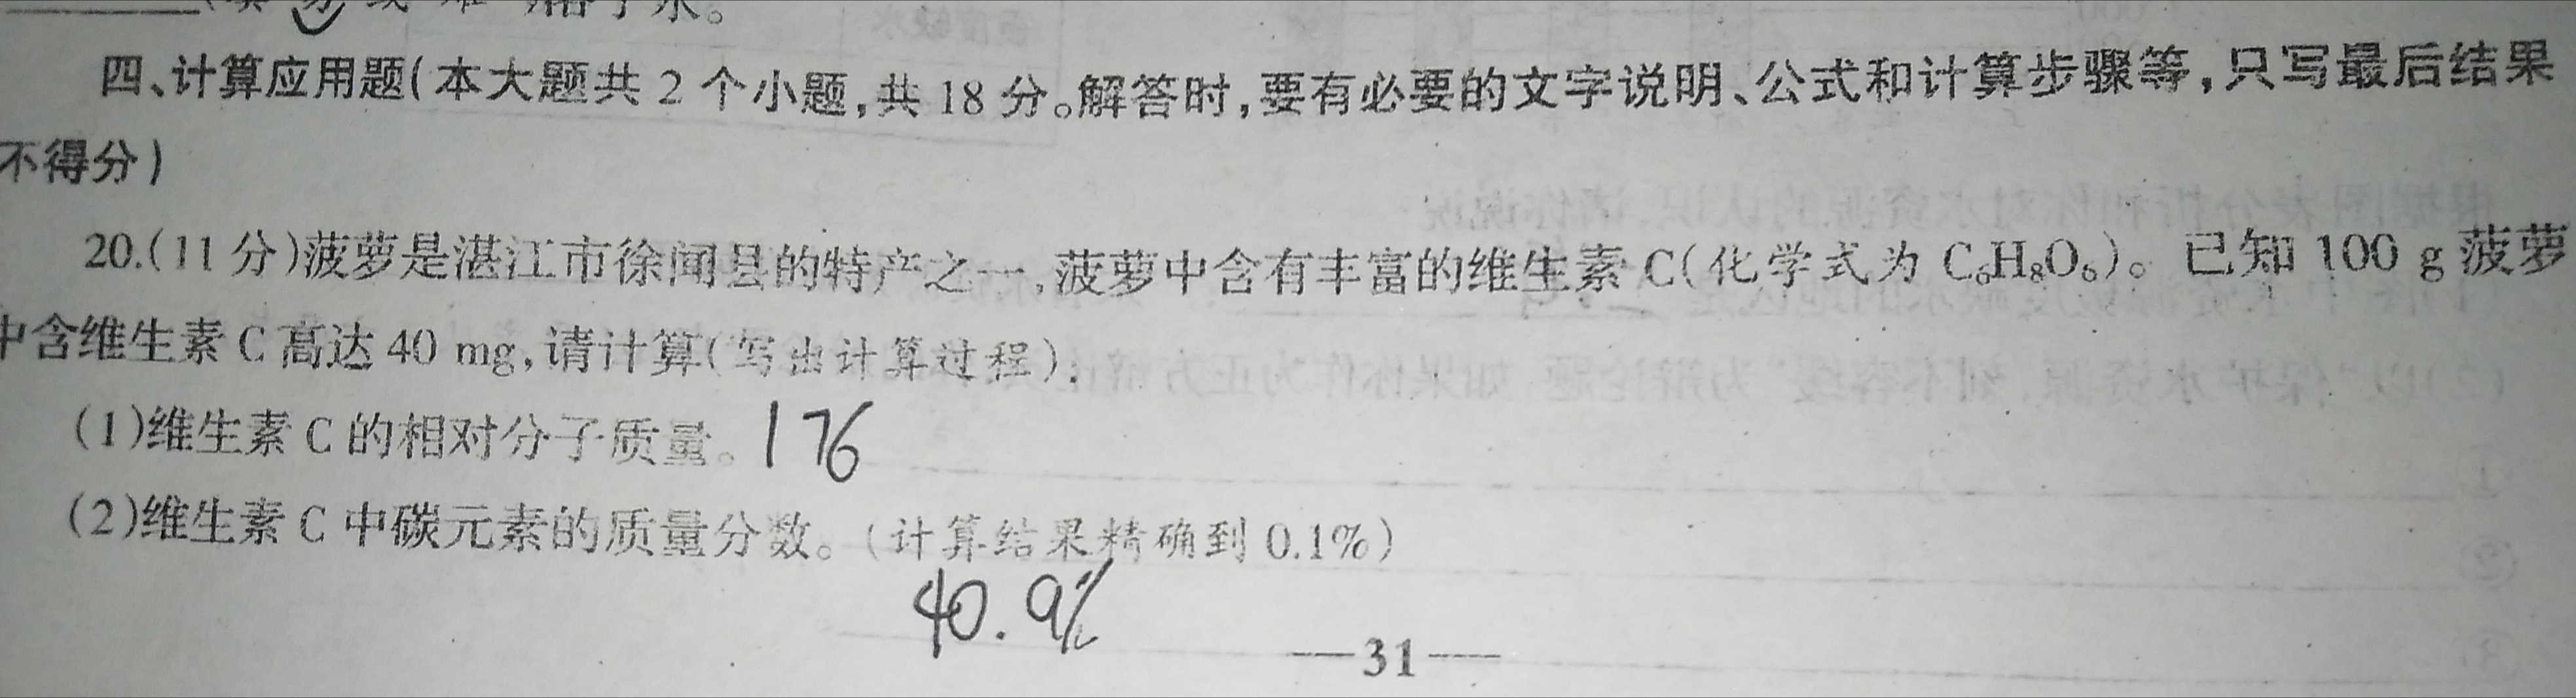 水。
四、计算应用题(本大题共2个小题,共18分。解答时,要有必要的文字说明、公式和计算步骤等,只写最后结果
不得分)
20.(11分)菠萝是湛江市徐闻县的特产之一,菠萝中含有丰富的维生素C(化学式为C₆H₈O₆)。已知100 g菠萝
中含维生素C高达40 mg,请计算(写出计算过程):
(1)维生素C的相对分子质量。176
(2)维生素C中碳元素的质量分数。(计算结果精确到0.1%)
40.9%
—31—